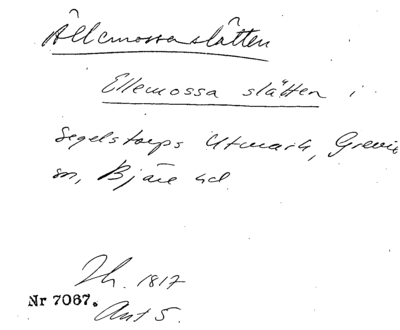 Ällemossaslätten
Ellemossa slätten i
Segelstorps Utmark, Grevie
sn, Bjäre hd
Th. 1817
Nr 7067.
Ant 5.